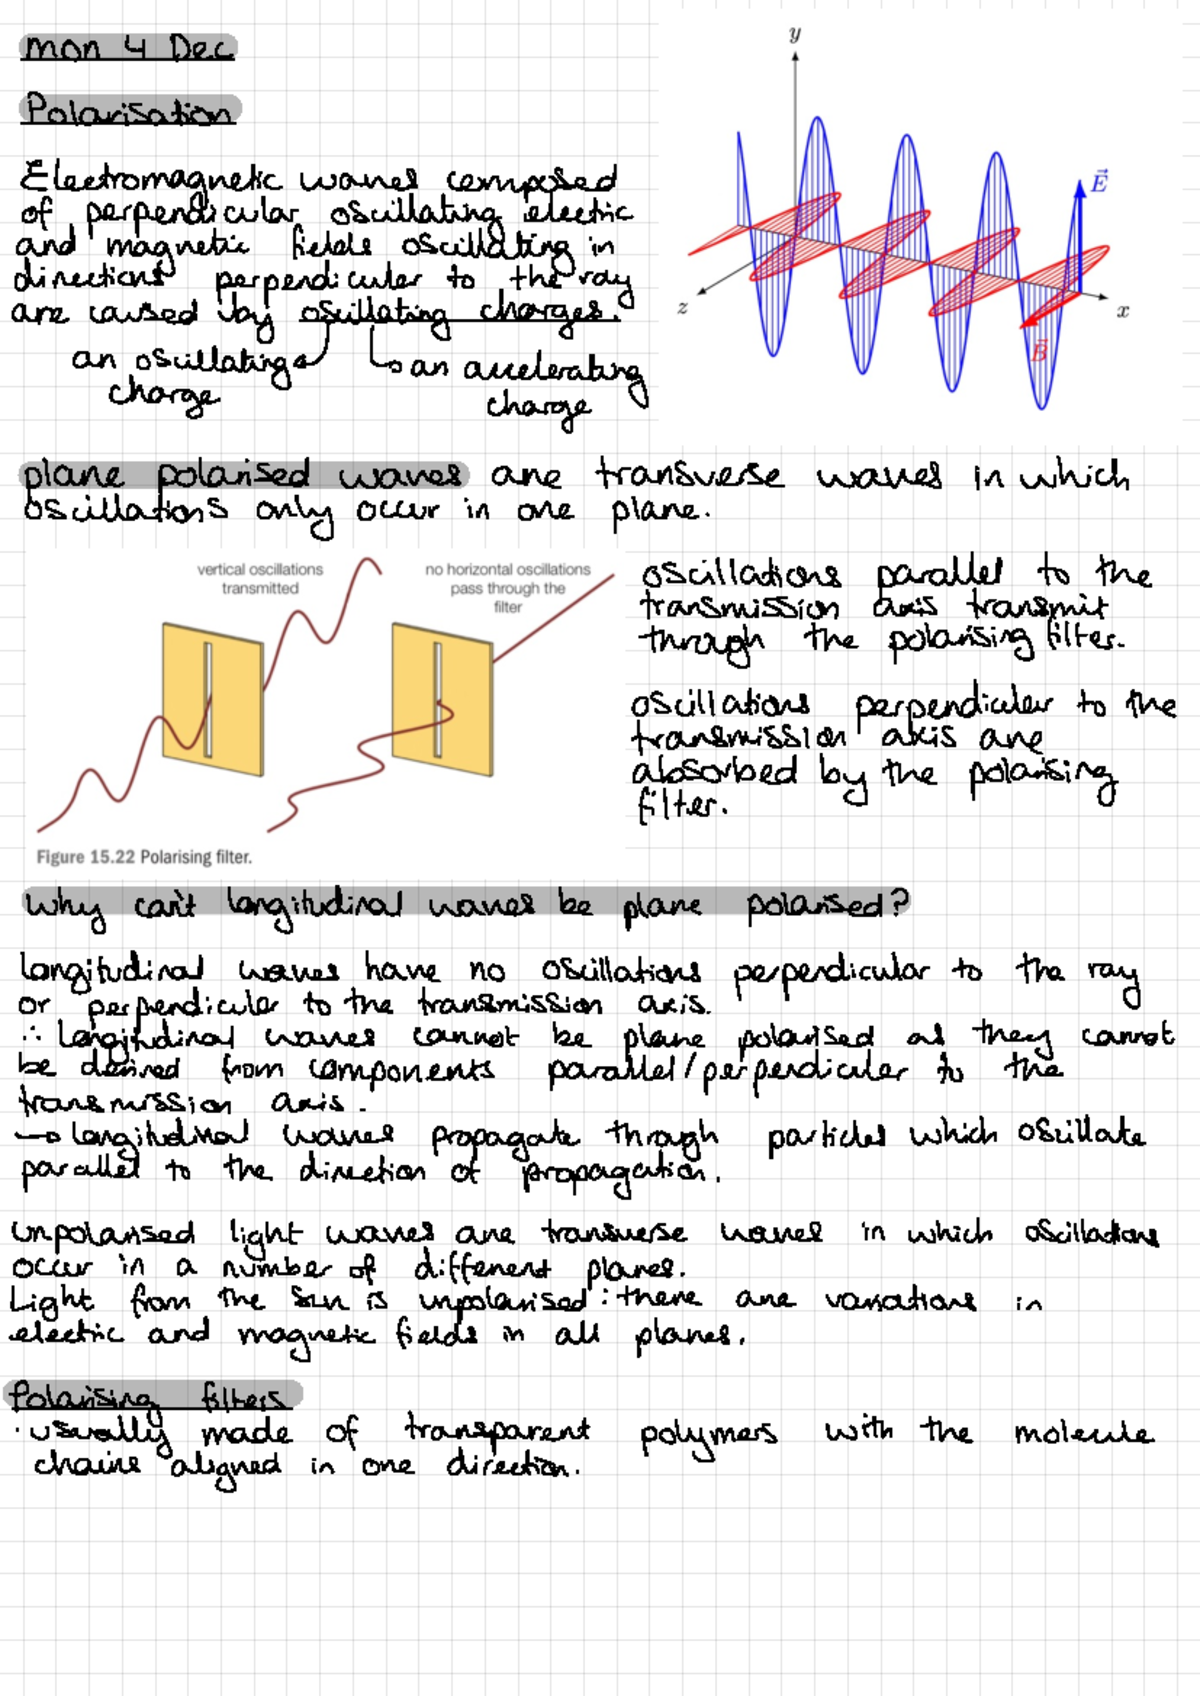 mon 4 Dec
Polarisation
Electromagnetic waves composed
of perpendicular oscillating electric
and magnetic fields oscillating in
directions perpendicular to the ray
are caused by oscillating charges.
an oscillating
charge
an accelerating
charge
y
z
x
E
B
plane polarised waves are transverse waves in which
oscillations only occur in one plane.
vertical oscillations
transmitted
no horizontal oscillations
pass through the
filter
Figure 15.22 Polarising filter.
oscillations parallel to the
transmission axis transmit
through the polarising filter.
oscillations perpendicular to the
transmission axis are
absorbed by the polarising
filter.
Why can't longitudinal waves be plane polarised?
longitudinal waves have no oscillations perpendicular to the ray
or perpendicular to the transmission axis.
∴ longitudinal waves cannot be plane polarised as they cannot
be derived from components parallel/perpendicular to the
transmission axis.
→ longitudinal waves propagate through particles which oscillate
parallel to the direction of propagation.
unpolarised light waves are transverse waves in which oscillations
occur in a number of different planes.
Light from the Sun is unpolarised: there are variations in
electric and magnetic fields in all planes.
Polarising filters
· usually made of transparent polymers with the molecule
chains aligned in one direction.